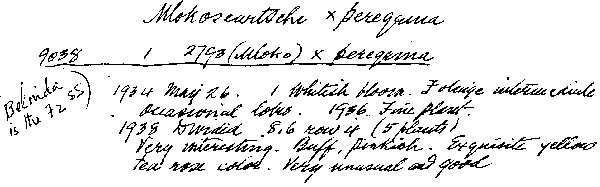 Mlokosewitschi x peregrina
9038 1 2793 (Mloko) x peregrina
Belinda is the F2 SS)
1934 May 26. 1 Whitish bloom. Foliage intermediate
Occasional lobes. 1936. Fine plant.
1938 Divided. S. 6 row 14 (5 plants)
Very interesting. Buff, pinkish. Exquisite yellow
tea rose color. Very unusual and good